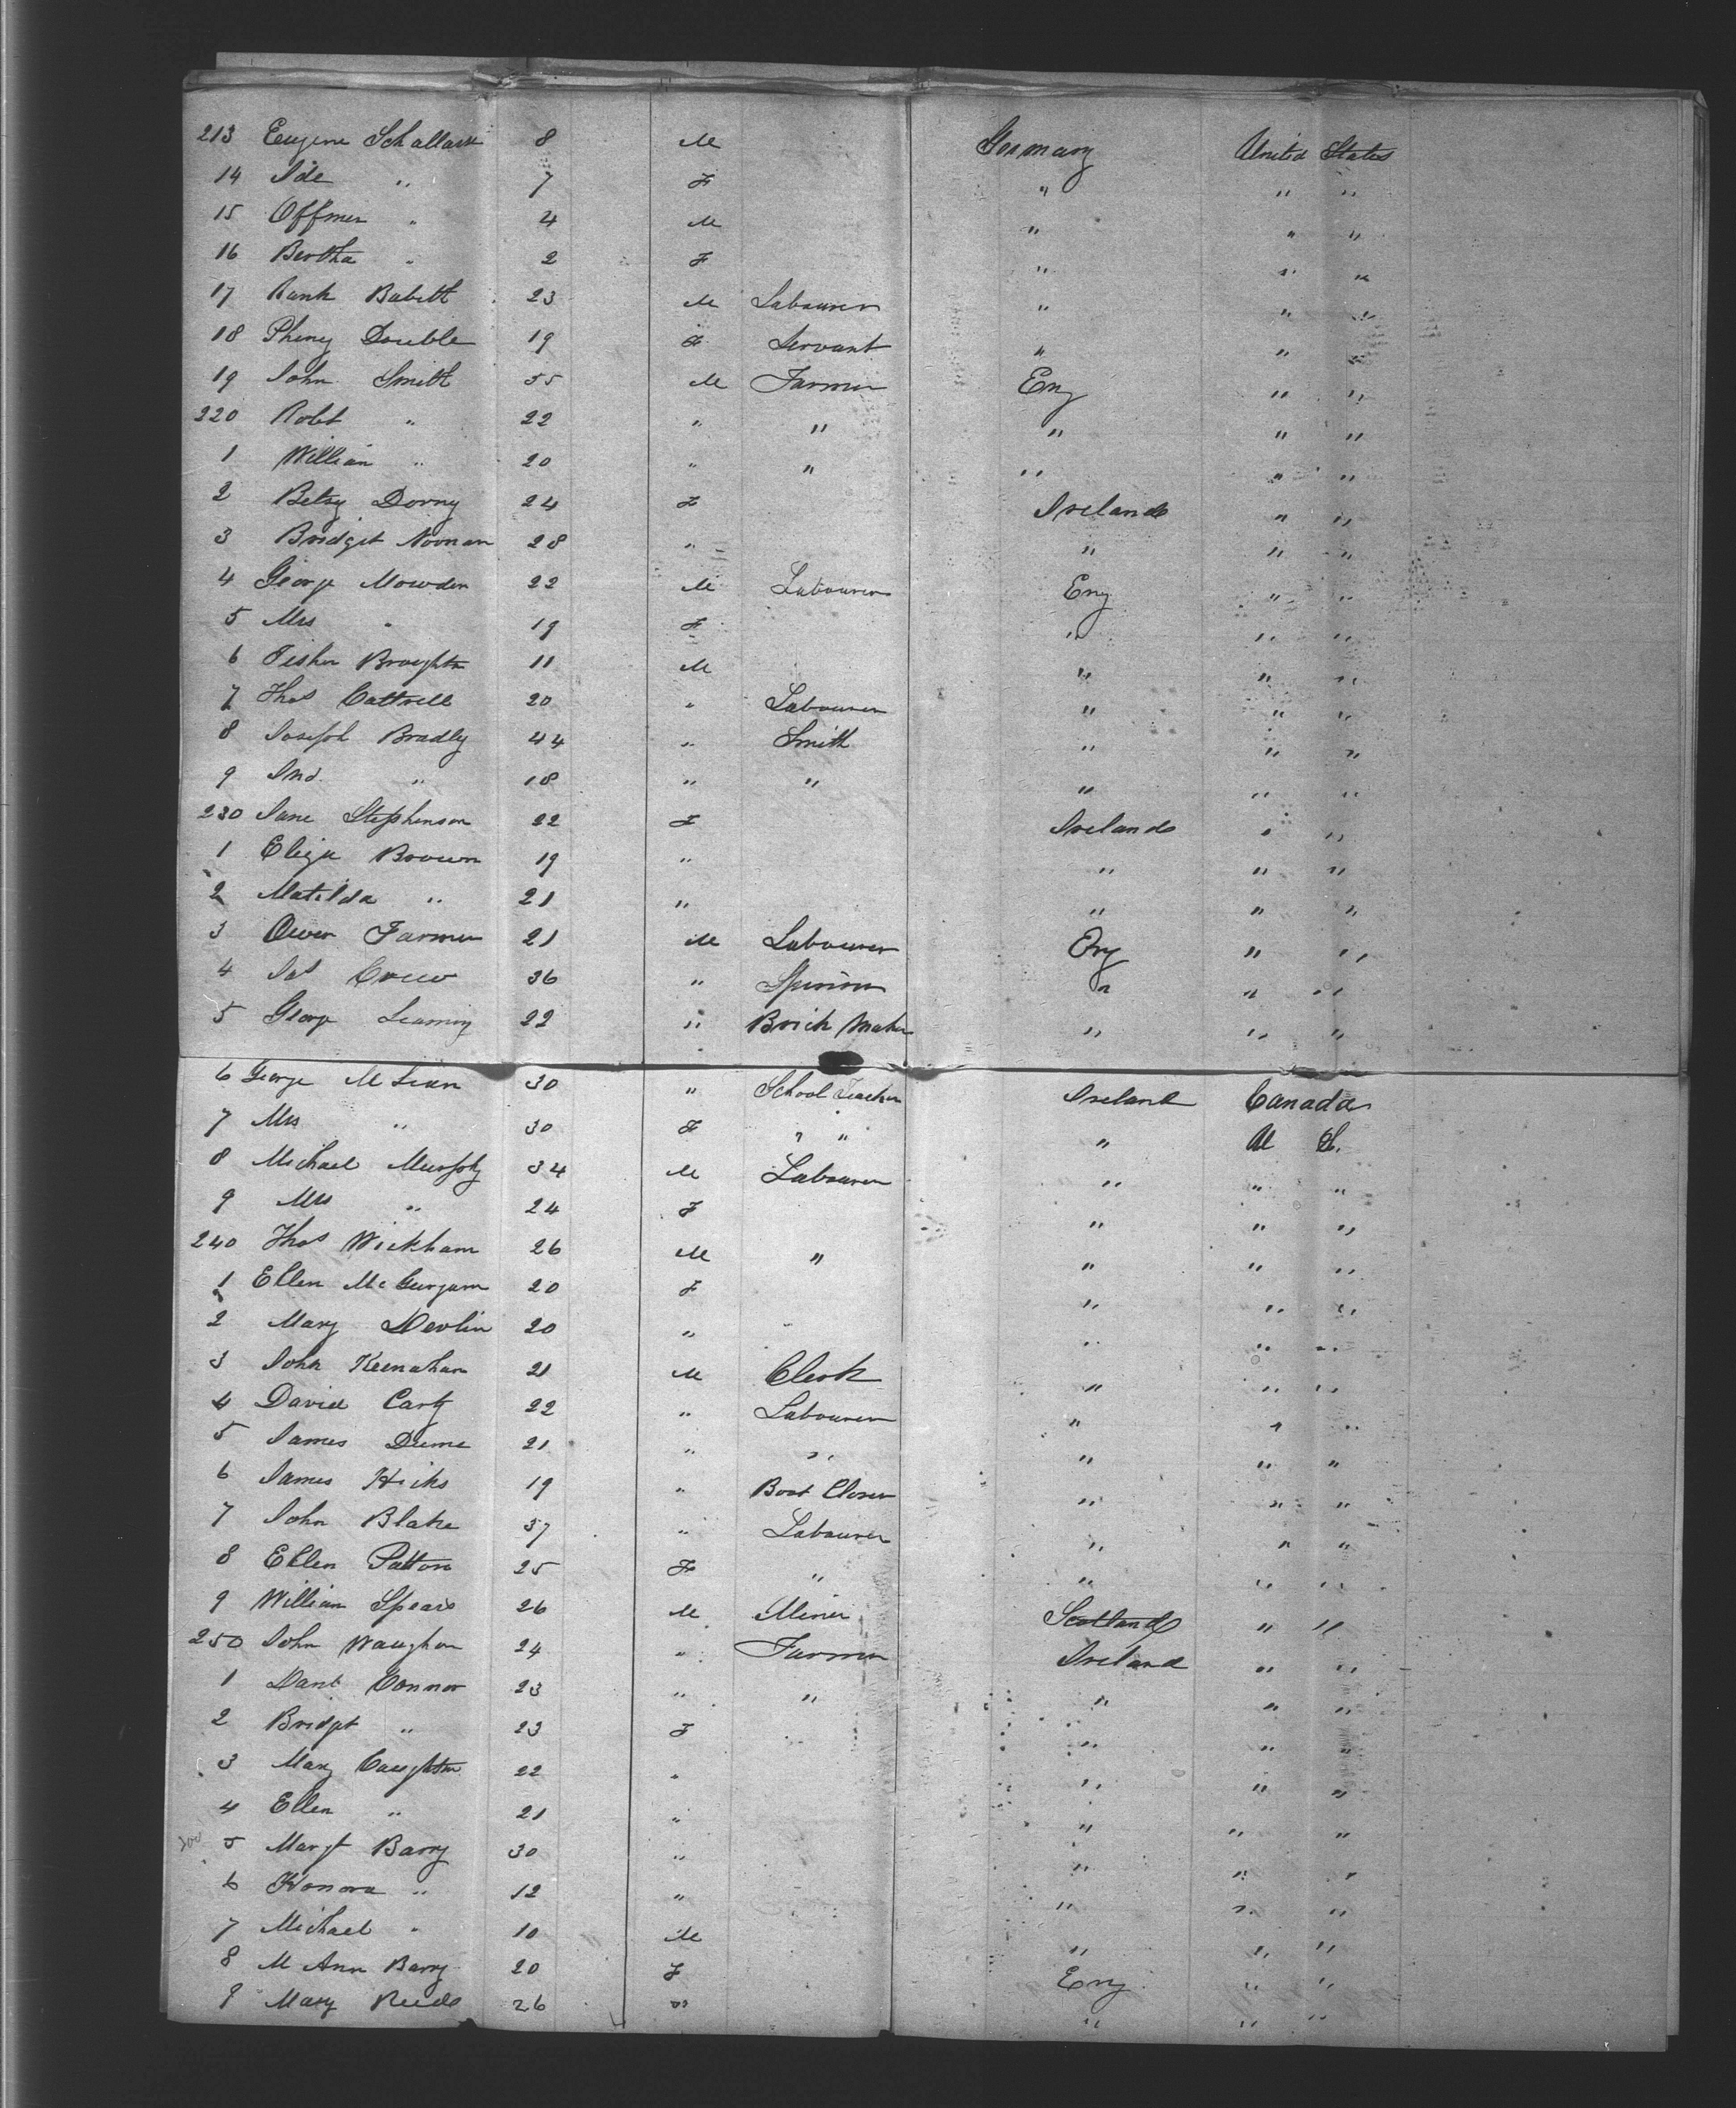 213 Eugene Schallart 8 M Germany United States
14 Ide " 7 F " " "
15 Offmer " 4 M " " "
16 Bertha " 2 F " " "
17 Babett 23 M Labourer " " "
18 Pheny Double 19 F Servant " " "
19 John Smith 55 M Farmer Eng " "
220 Robt " 22 " " " " "
1 William " 20 " " " " "
2 Betsy Dorny 24 F Ireland " "
3 Bridget Noonan 28 " " " "
4 George Mowden 22 M Labourer Eng " "
5 Mrs " 19 F " " "
6 Fisher Broughton 11 M " " "
7 Thos Cottrell 20 " Labourer " " "
8 Joseph Bradly 44 " Smith " " "
9 Jno. " 18 " " " " "
230 Jane Stephenson 22 F Ireland " "
1 Eliza Brown 19 " " " "
2 Matilda " 21 " " " "
3 Owen Farmer 21 M Labourer Eng " "
4 Jas Crew 36 " " " "
5 George Leaming 22 " Brick Maker " " "
6 George McLean 30 " School Teacher Ireland Canada
7 Mrs " 30 F " " " U S.
8 Michael Murphy 34 M Labourer " " "
9 Mrs " 24 F " " "
240 Thos Wickham 26 M " " " "
1 Ellen McGurgam 20 F " " "
2 Mary Devlin 20 " " " "
3 John Keenahan 21 M Clerk " " "
4 David Carty 22 " Labourer " " "
5 James 21 " " " " "
6 James Hicks 19 " Boot Closer " " "
7 John Blake 37 " Labourer " " "
8 Ellen Patton 25 F " " " "
9 William Spears 26 M Miner Scotland " "
250 John Waughan 24 " Farmer Ireland " "
1 Danl Connor 23 " " " " "
2 Bridget " 23 F " " "
3 Mary Caughton 22 " " " "
4 Ellen " 21 " " " "
5 Margt Barry 30 " " " "
6 Honora " 12 " " " "
7 Michael " 10 M " " "
8 M Ann Barry 20 F Eng " "
9 Mary Reeds 26 " " " "